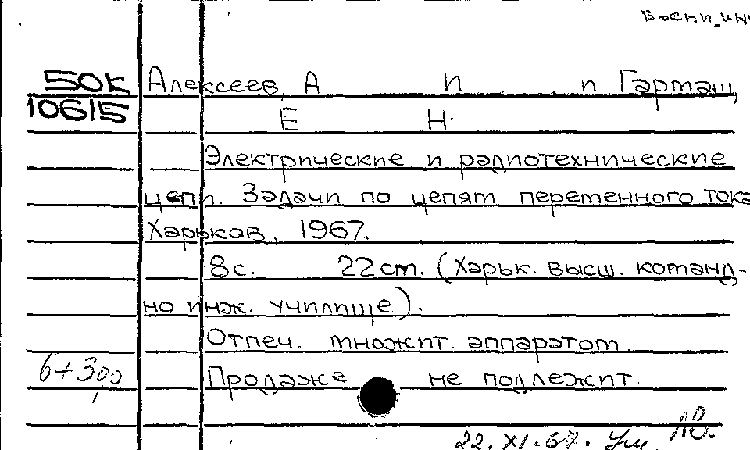 50К Алексеев, А И и Гарташ,
10615 Е Н.
Электрические и радиотехнические
цепи. Задачи по цепям переменного тока
Харьков, 1967.
8с. 22см. (Харьк. высш. команд-
но инж. училище).
Отпеч. множит. аппаратом.
6+300 Продаже не подлежит.
22. XI. 67.